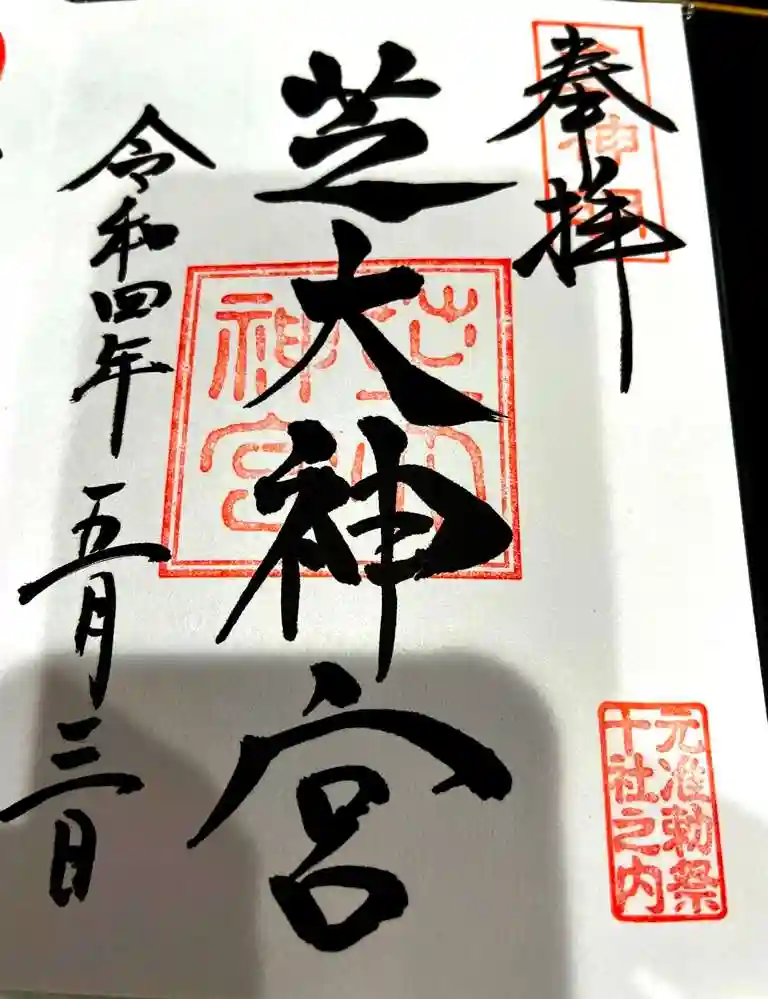 奉拝
元准勅祭
十社之内
芝大神宮
神宮
令和四年 五月三日